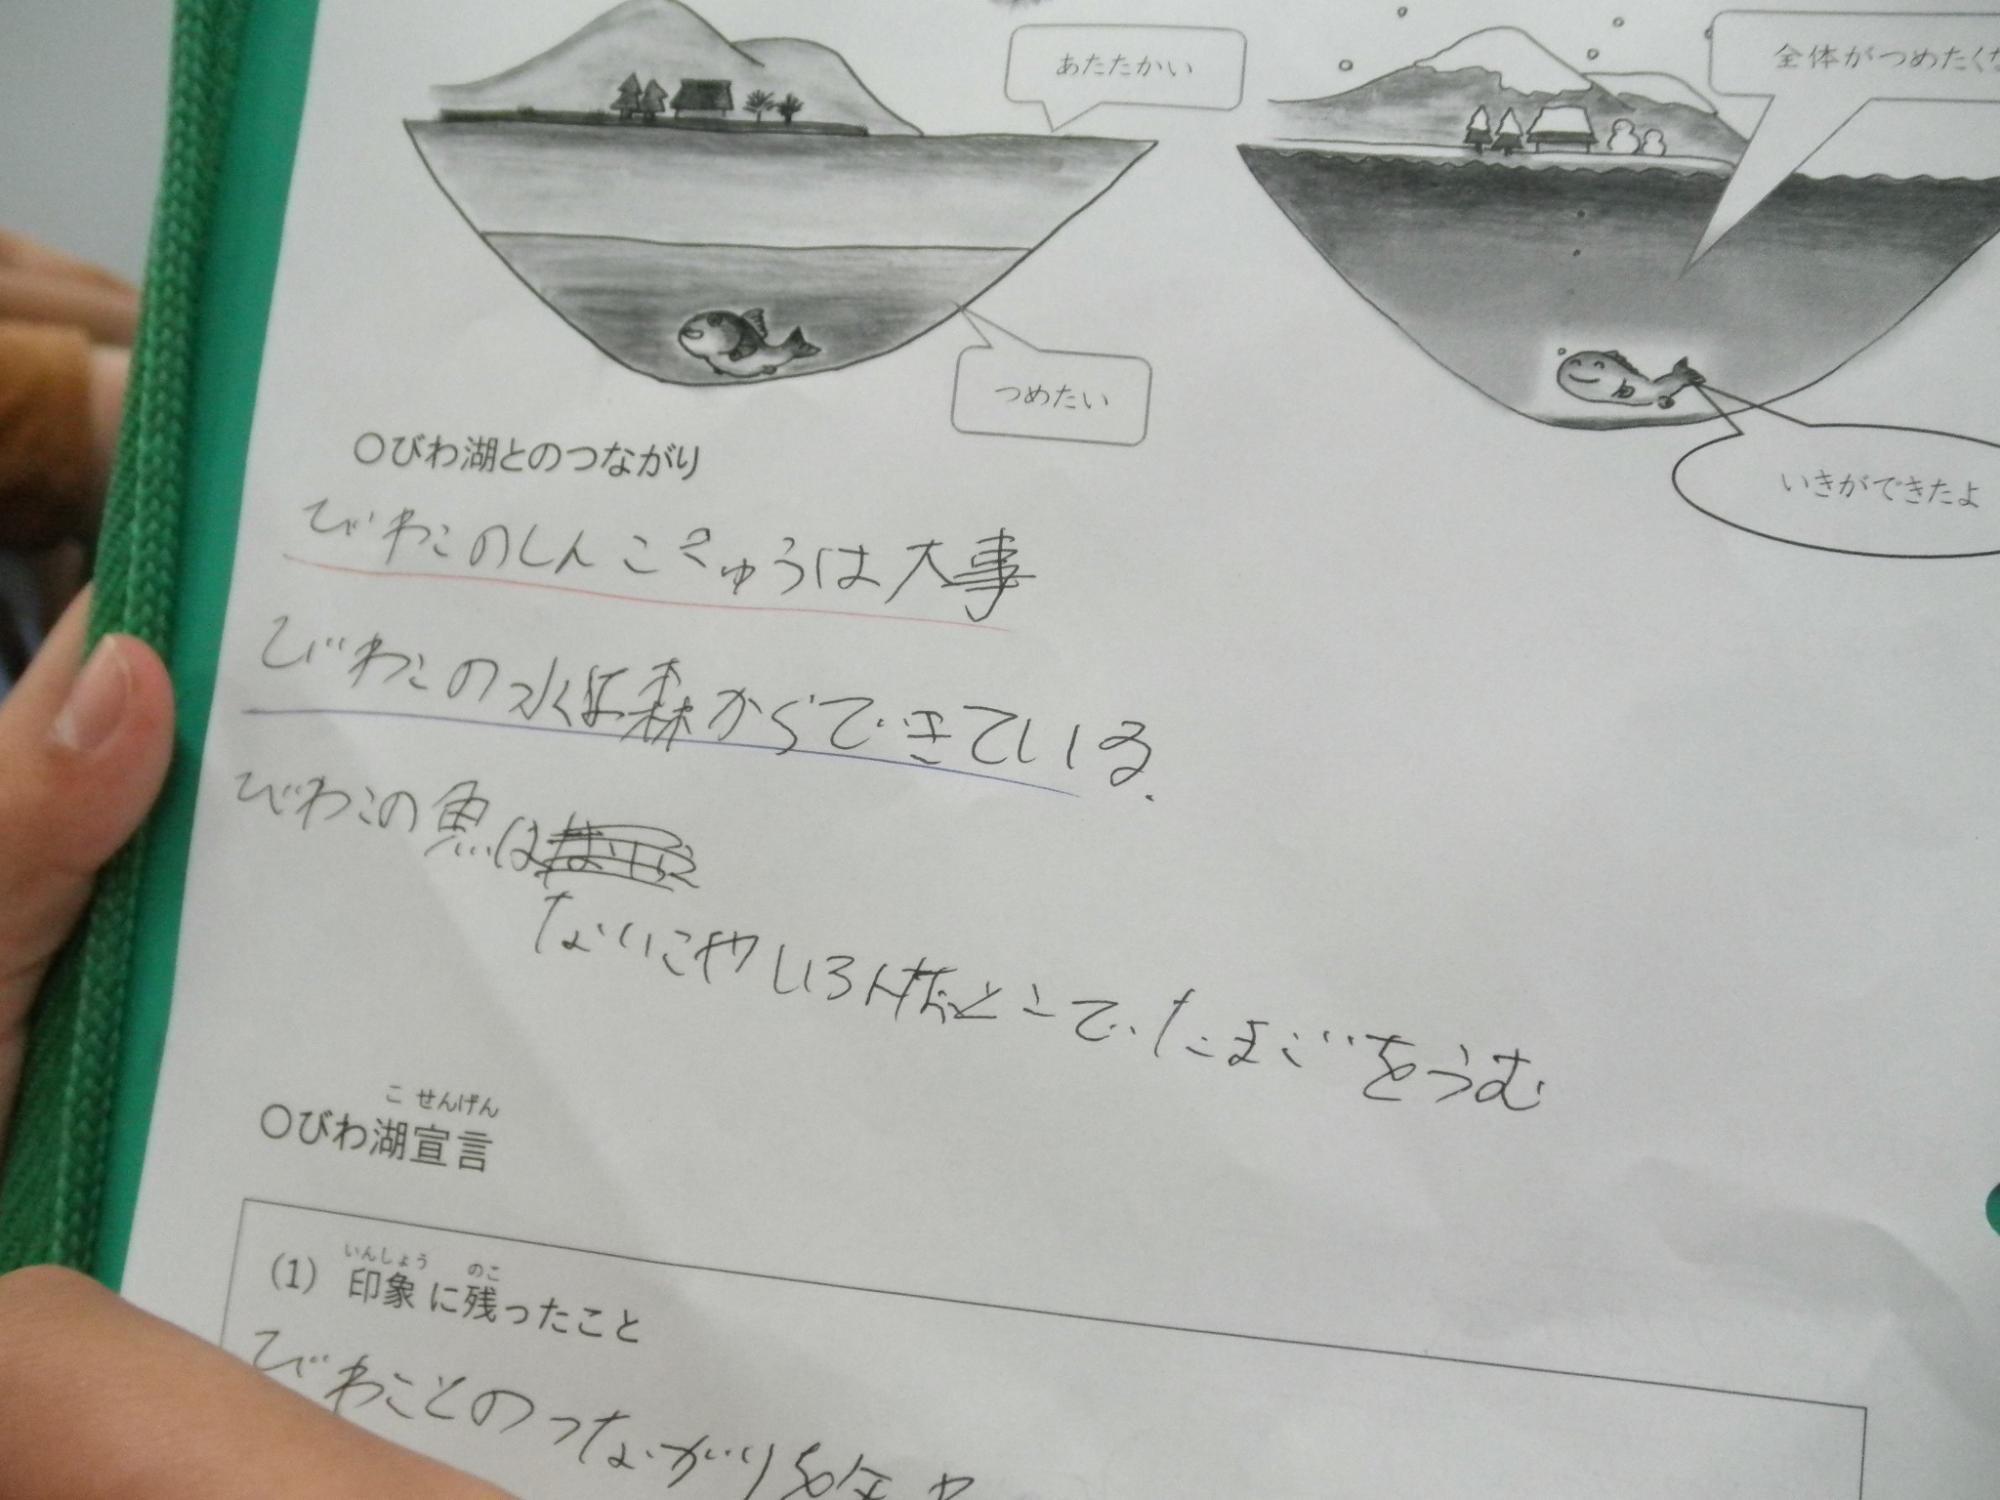 あたたかい
全体がつめたくな
つめたい
いきができたよ
○びわ湖とのつながり
びわこのしんこきゅうは大事
びわこの水は森からできている.
びわこの魚は
ないこやいろんなところで、たまごをうむ
こ せんげん
○びわ湖宣言
いんしょう のこ
(1) 印象に残ったこと
びわことのつながり